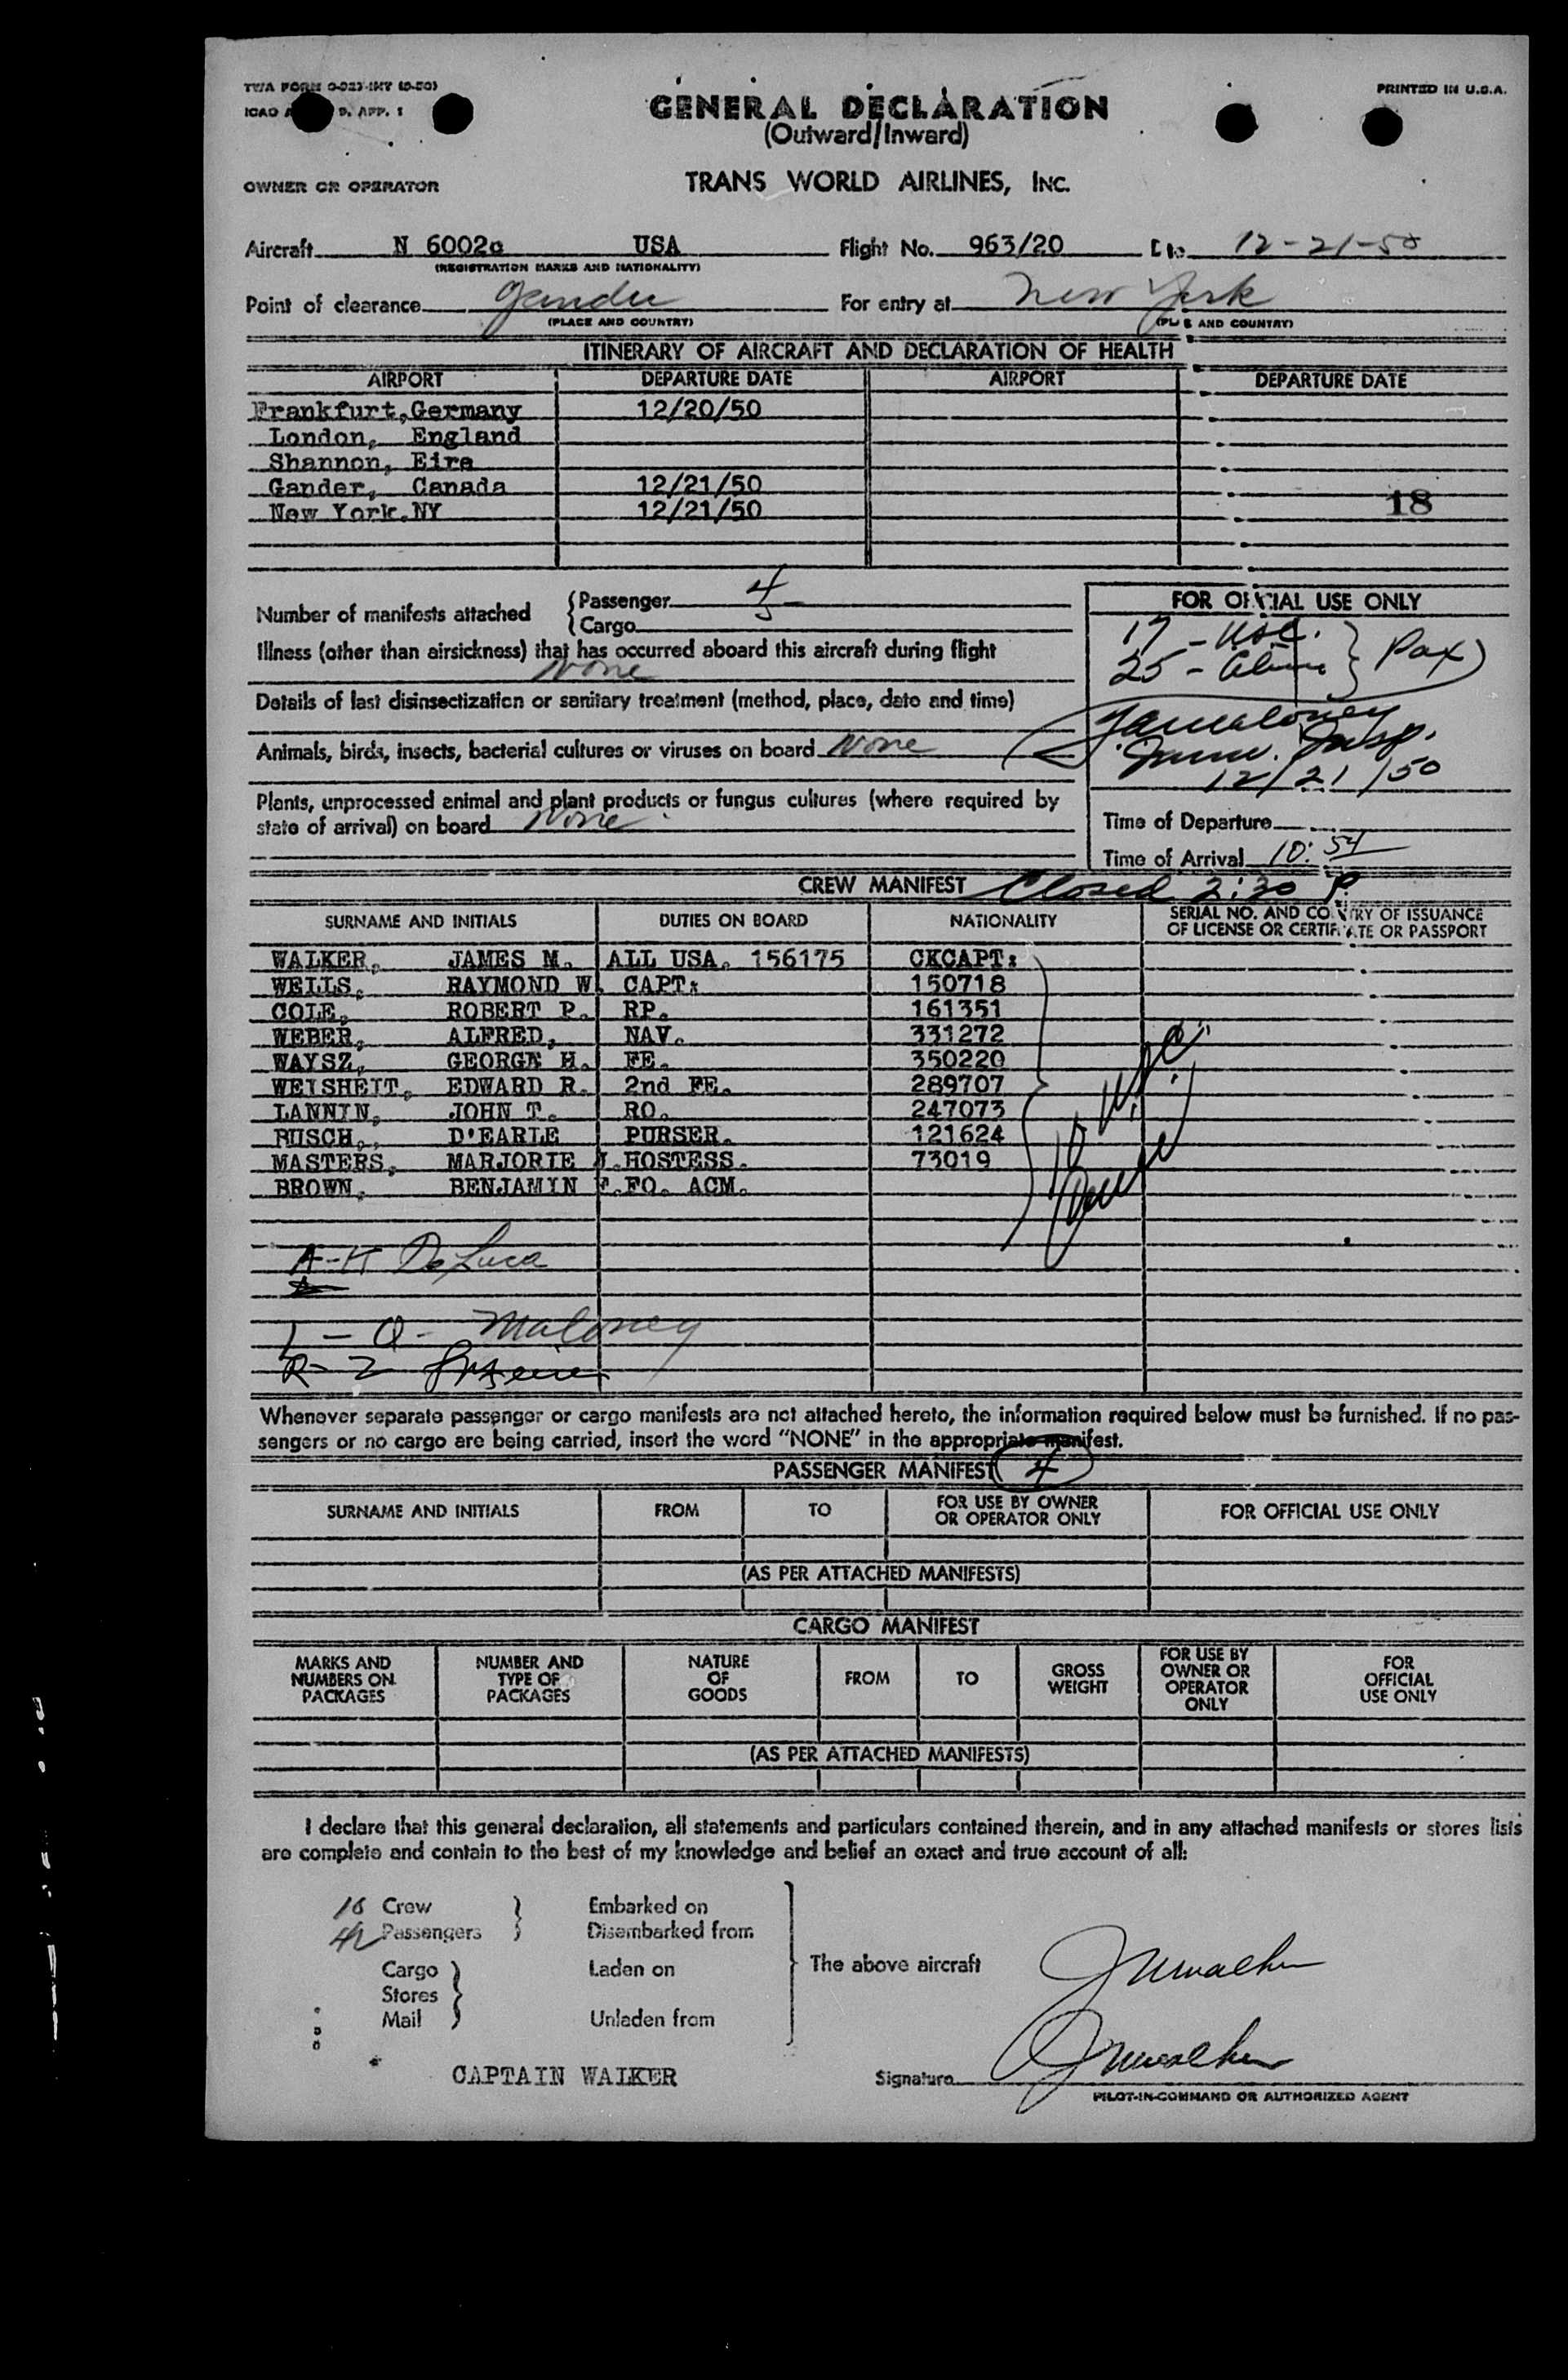 TWA FORM 0-023-INT (9-50)
PRINTED IN U.S.A.
ICAO D. APP. 1
GENERAL DECLARATION
(Outward/Inward)
OWNER OR OPERATOR
TRANS WORLD AIRLINES, INC.
Aircraft N 6002c USA Flight No. 963/20 12-21-50
(REGISTRATION MARKS AND NATIONALITY)
Point of clearance Gander For entry at New York
(PLACE AND COUNTRY) AND COUNTRY)
ITINERARY OF AIRCRAFT AND DECLARATION OF HEALTH
AIRPORT DEPARTURE DATE AIRPORT DEPARTURE DATE
Frankfurt, Germany 12/20/50
London, England
Shannon, Eire
Gander, Canada 12/21/50
New York, NY 12/21/50
18
Number of manifests attached {Passenger 4
{Cargo
FOR OFFICIAL USE ONLY
17 - USC. } Pax
25 - Aliens
Illness (other than airsickness) that has occurred aboard this aircraft during flight
None
Details of last disinsectization or sanitary treatment (method, place, date and time)
Maloney
Imm. Insp.
12/21/50
Animals, birds, insects, bacterial cultures or viruses on board None
Plants, unprocessed animal and plant products or fungus cultures (where required by
state of arrival) on board None
Time of Departure
Time of Arrival 10:54
CREW MANIFEST Closed 2:30 P.
SURNAME AND INITIALS DUTIES ON BOARD NATIONALITY SERIAL NO. AND COUNTRY OF ISSUANCE
OF LICENSE OR CERTIFICATE OR PASSPORT
WALKER, JAMES M. ALL USA. 156175 CKCAPT:
WELLS, RAYMOND W. CAPT: 150718
COLE, ROBERT P. RP. 161351
WEBER, ALFRED, NAV. 331272
WAYSZ, GEORGE H. FE. 350220
WEISHEIT, EDWARD R. 2nd FE. 289707
LANNIN, JOHN T. RO. 247073
BUSCH, D'EARLE PURSER. 121624
MASTERS, MARJORIE J. HOSTESS. 73019
BROWN, BENJAMIN F. FO. ACM.
10 USC.
A-K DeLuca
L - Q - Maloney
R-Z
Whenever separate passenger or cargo manifests are not attached hereto, the information required below must be furnished. If no pas-
sengers or no cargo are being carried, insert the word "NONE" in the appropriate manifest.
PASSENGER MANIFEST 4
SURNAME AND INITIALS FROM TO FOR USE BY OWNER
OR OPERATOR ONLY FOR OFFICIAL USE ONLY
(AS PER ATTACHED MANIFESTS)
CARGO MANIFEST
MARKS AND
NUMBERS ON
PACKAGES NUMBER AND
TYPE OF
PACKAGES NATURE
OF
GOODS FROM TO GROSS
WEIGHT FOR USE BY
OWNER OR
OPERATOR
ONLY FOR
OFFICIAL
USE ONLY
(AS PER ATTACHED MANIFESTS)
I declare that this general declaration, all statements and particulars contained therein, and in any attached manifests or stores lists
are complete and contain to the best of my knowledge and belief an exact and true account of all:
10 Crew Embarked on
42 Passengers Disembarked from
Cargo Laden on The above aircraft JMWalker
Stores
Mail Unladen from
CAPTAIN WALKER Signature JMWalker
PILOT-IN-COMMAND OR AUTHORIZED AGENT